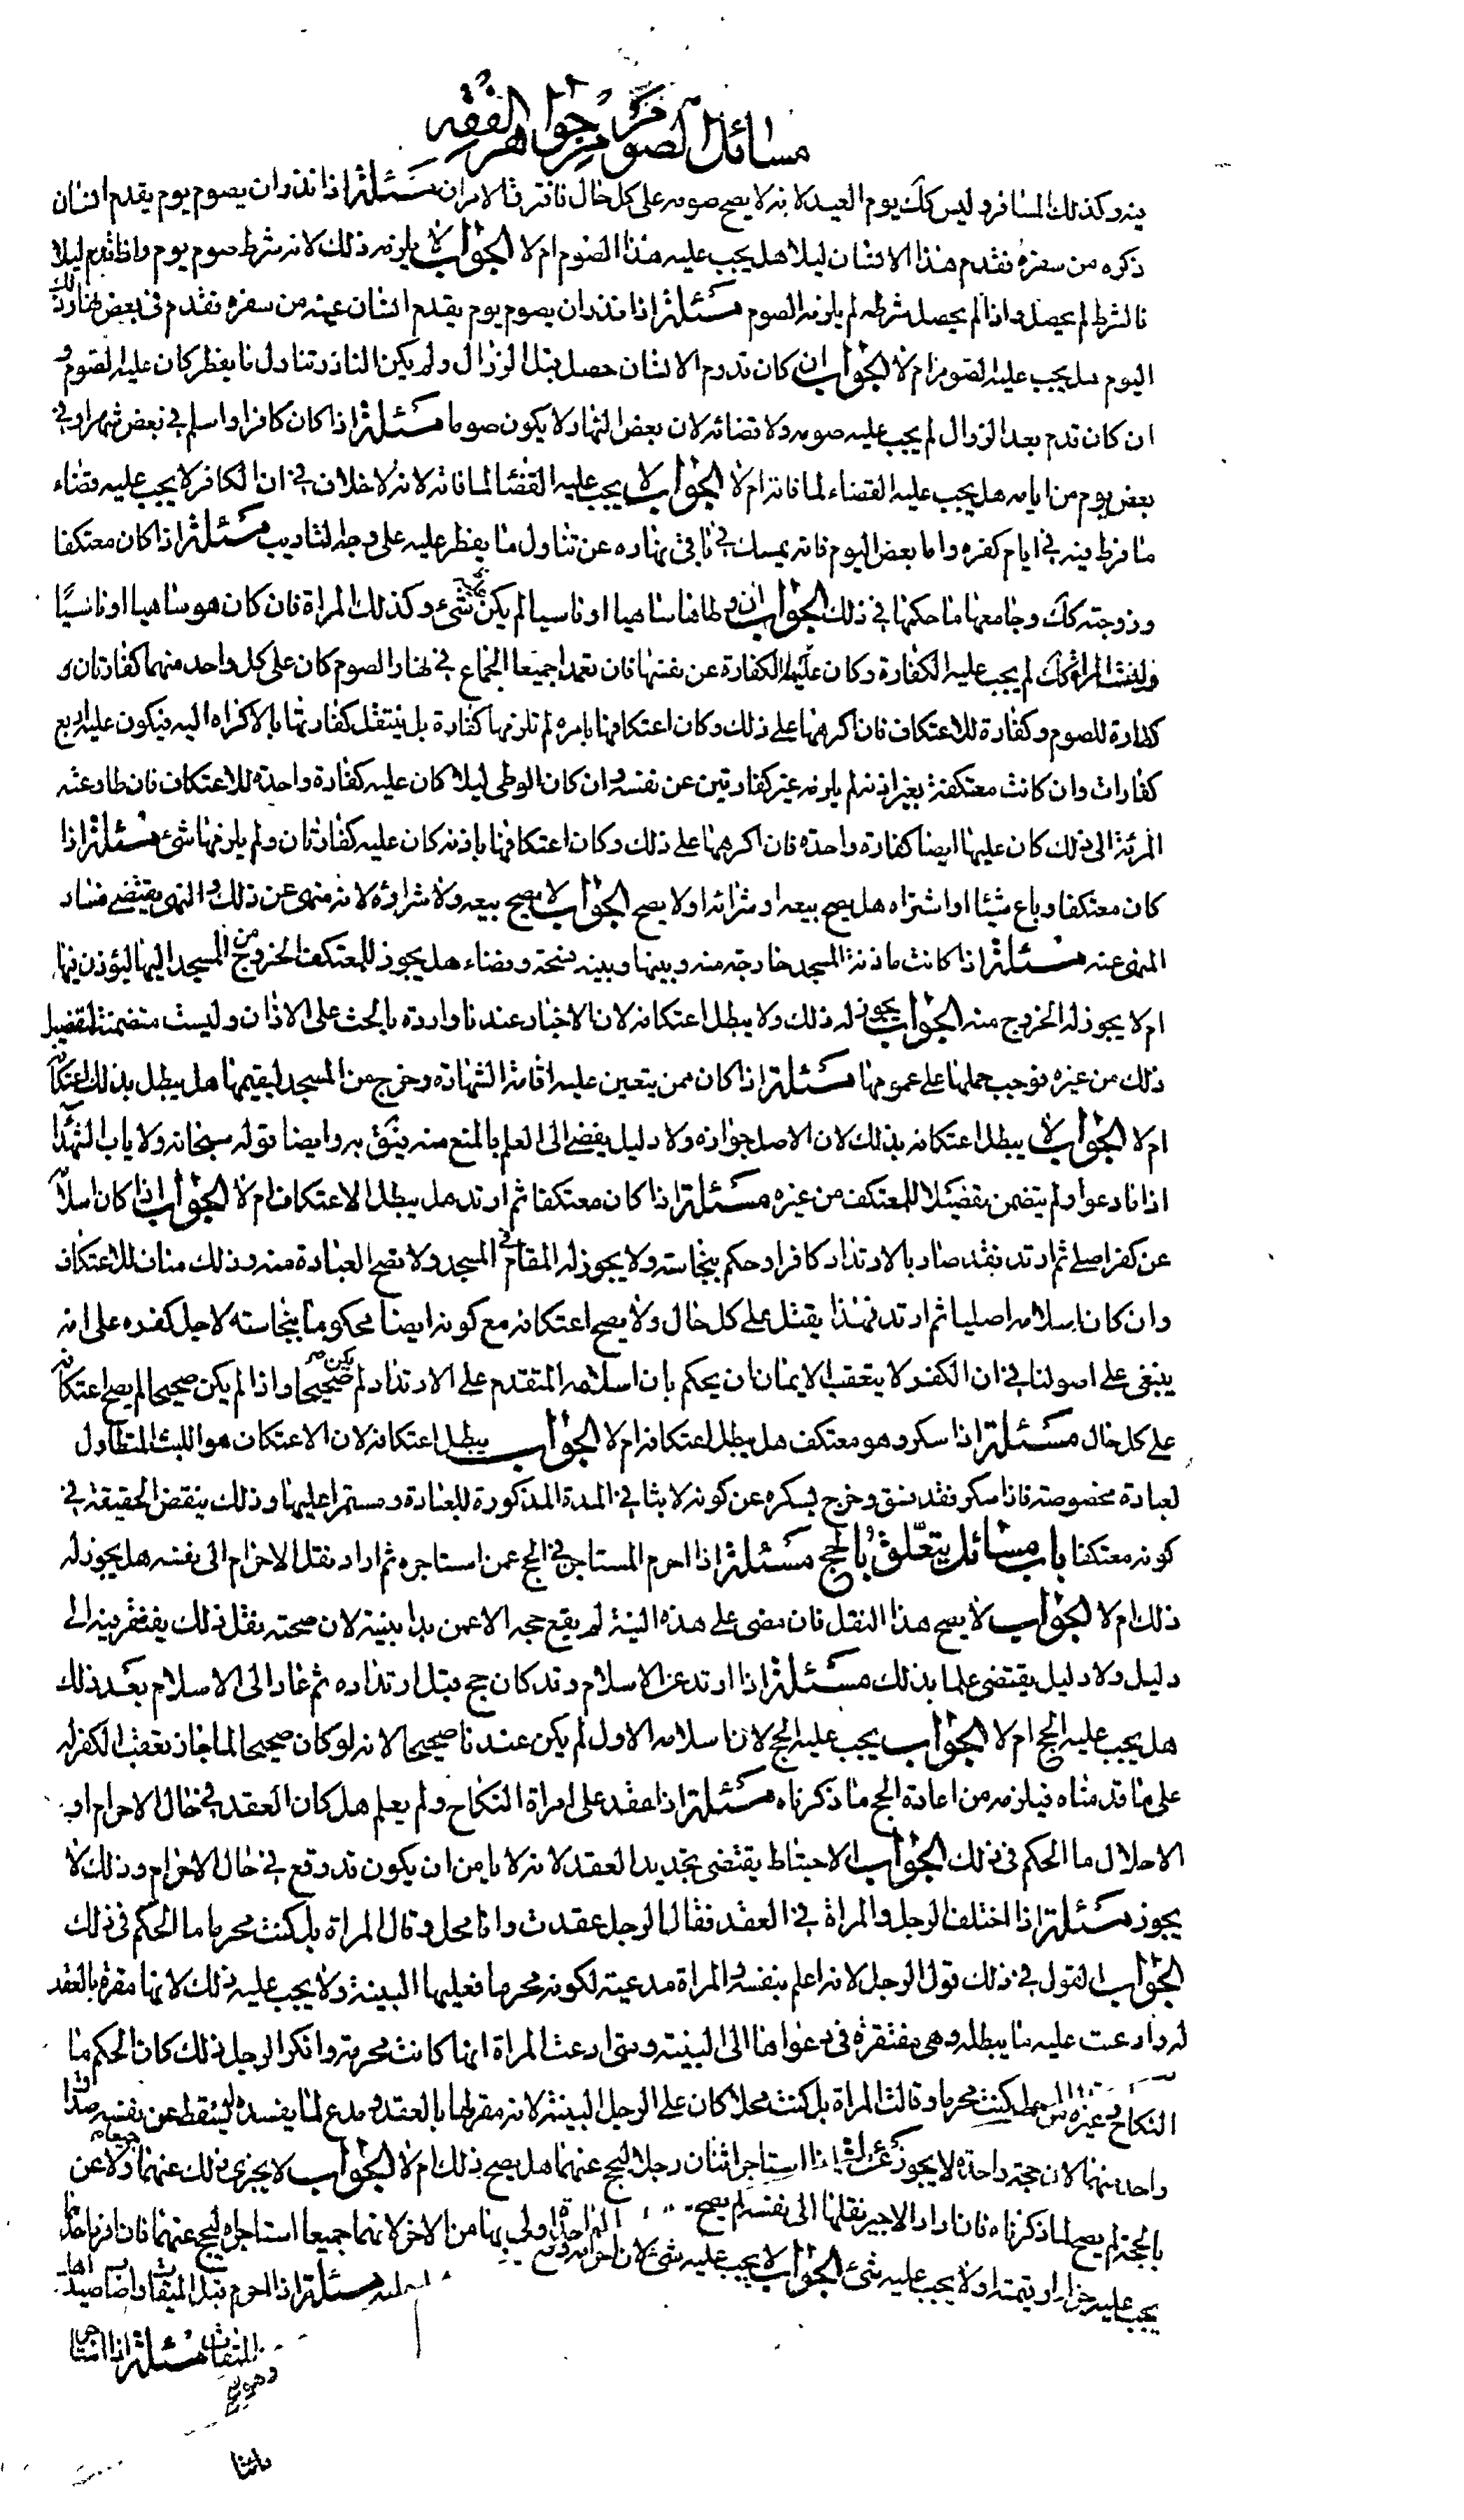 مسائل الصوم من جواهر الفقه
فيه وكذلك المسافر وليس كك يوم العيد لانه لا يصح صومه على كل حال فافترق الامران مسئلة اذا نذر ان يصوم يوم يقدم انسان
ذكره من سفره فقدم هذا الانسان ليلا هل يجب عليه هذا الصوم ام لا الجواب لا يلزمه ذلك لانه شرط صوم يوم واذا قدم ليلا
فالشرط لم يحصل واذا لم يحصل شرطه لم يلزمه الصوم مسئلة اذا نذر ان يصوم يوم يقدم انسان عينه من سفره فقدم في بعض نهار ذلك
اليوم هل يجب عليه الصوم ام لا الجواب ان كان قدوم الانسان حصل قبل الزوال ولم يكن الناذر تناول ما يفطر كان عليه الصوم و
ان كان قدم بعد الزوال لم يجب عليه صومه ولا قضائه لان بعض النهار لا يكون صوما مسئلة اذا كان كافرا واسلم في بعض شهر او في
بعض يوم من ايامه هل يجب عليه القضاء لما فاته ام لا الجواب لا يجب عليه القضا لما فاته لانه لا خلاف في ان الكافر لا يجب عليه قضاء
ما فرط فيه في ايام كفره واما بعض اليوم فانه يمسك في باقي نهاره عن تناول ما يفطر عليه على وجه التاديب مسئلة اذا كان معتكفا
وزوجته كك وجامعها ما حكمها في ذلك الجواب ان وطاها ساهيا او ناسيا لم يكن عليه شئ وكذلك المراة فان كان هو ساهيا او ناسيا
وليست المراة كك لم يجب عليه الكفارة وكان عليها الكفارة عن نفسها فان تعمدا جميعا الجماع في نهار الصوم كان على كل واحد منهما كفارتان
كفارة للصوم وكفارة للاعتكاف فان اكرهها على ذلك وكان اعتكافها بامره لم تلزمها كفارة بل ينتقل كفارتها بالاكراه اليه فيكون عليه اربع
كفارات وان كانت معتكفة بغير اذنه لم يلزمه غير كفارتين عن نفسه وان كان الوطى ليلا كان عليه كفارة واحدة للاعتكاف فان طاوعته
المرئة الى ذلك كان عليها ايضا كفارة واحدة فان اكرهها على ذلك وكان اعتكافها باذنه كان عليه كفارتان ولم يلزمها شئ مسئلة اذا
كان معتكفا وباع شيئا او اشتراه هل يصح بيعه او شرائه او لا يصح الجواب لا يصح بيعه ولا شراؤه لانه منهى عن ذلك والنهى يقتضى فساد
المنهى عنه مسئلة اذا كانت ماذنة المسجد خارجة منه وبينها وبينه فسحة وفضاء هل يجوز للمعتكف الخروج من المسجد اليها ليؤذن فيها
ام لا يجوز له الخروج منه الجواب يجوز له ذلك ولا يبطل اعتكافه لان الاخبار عندنا واردة بالحث على الاذان وليست متضمنة لتفصيل
ذلك من غيره فوجب حملها على عمومها مسئلة اذا كان ممن يتعين عليه اقامة الشهادة وخرج من المسجد ليقيمها هل يبطل بذلك اعتكافه
ام لا الجواب لا يبطل اعتكافه بذلك لان الاصل جوازه ولا دليل يفضى الى العلم بالمنع منه يتق به وايضا قوله سبحانه ولا ياب الشهدا
اذا ما دعوا ولم يتضمن تفضيلا للمعتكف من غيره مسئلة اذا كان معتكفا ثم ارتد هل يبطل الاعتكاف ام لا الجواب اذا كان اسلامه
عن كفر اصلى ثم ارتد فقد صار بالارتداد كافرا وحكم بنجاسته ولا يجوز له المقام في المسجد ولا تصح العبادة منه وذلك مناف للاعتكاف
وان كان اسلامه اصليا ثم ارتد فهذا يقتل على كل حال ولا يصح اعتكافه مع كونه ايضا محكوما بنجاسته لاجل كفره على انه
ينبغى على اصولنا في ان الكفر لا يتعقب الايمان ان يحكم بان اسلامه المتقدم على الارتداد لم يكن صحيحا واذا لم يكن صحيحا لم يصح اعتكافه
على كل حال مسئلة اذا سكر وهو معتكف هل يبطل اعتكافه ام لا الجواب يبطل اعتكافه لان الاعتكاف هو اللبث المتطاول
لعبادة مخصوصة فاذا سكر فقد فسق وخرج بسكره عن كونه لابثا في المدة المذكورة للعبادة ومستمرا عليها وذلك ينقض الحقيقة في
كونه معتكفا باب مسائل يتعلق بالحج مسئلة اذا احرم المستاجر في الحج عمن استاجره ثم اراد نقل الاحرام الى نفسه هل يجوز له
ذلك ام لا الجواب لا يصح هذا النقل فان مضى على هذه النية لم يقع حجه الا عمن بدا بنيته لان صحته نقل ذلك يفتقر فيه الى
دليل ولا دليل يقتضى علما بذلك مسئلة اذا ارتد عن الاسلام وقد كان حج قبل ارتداده ثم عاد الى الاسلام بعد ذلك
هل يجب عليه الحج ام لا الجواب يجب عليه الحج لان اسلامه الاول لم يكن عندنا صحيحا لانه لو كان صحيحا لما جاز تعقب الكفر له
على ما قدمناه فيلزمه من اعادة الحج ما ذكرناه مسئلة اذا عقد على امراة النكاح ولم يعلم هل كان العقد في حال الاحرام او
الاحلال ما الحكم فى ذلك الجواب الاحتياط يقتضى تجديد العقد لانه لا يامن ان يكون قد وقع في حال الاحرام وذلك لا
يجوز مسئلة اذا اختلف الرجل والمراة في العقد فقال الرجل عقدت وانا محل وقال المراة بل كنت محرما ما الحكم فى ذلك
الجواب القول في ذلك قول الرجل لانه اعلم بنفسه والمراة مدعية لكونه محرما فعليها البينة ولا يجب عليه ذلك لانها مقرة بالعقد
له وادعت عليه ما يبطله وهى مفتقرة فى دعواها الى البينة ومتى ادعت المراة انها كانت محرمة وانكر الرجل ذلك كان الحكم ما
كنت محرما وقالت المراة بل كنت محلا كان على الرجل البينة لانه مقر لها بالعقد ومدع لما يفسده ليسقط عن نفسه صداق
النكاح وغيره
اذا استاجر اثنان رجلا ليحج عنهما هل يصح ذلك ام لا الجواب لا يجزى ذلك عنهما ولا عن
واحد منهما لان حجة واحدة لا يجوز
اولى بها من الاخر لانهما جميعا استاجراه ليحج عنهما فان احرم
بالحجة لم يصح لما ذكرناه فان اراد الاجير نقلها الى نفسه لم يصح
مسئلة اذا احرم قبل الميقات واصاب صيدا
يجب عليه جزاء او قيمته او لا يجب عليه شئ الجواب لا يجب عليه شئ لان احرامه
الميقات مسئلة اذا استاجر